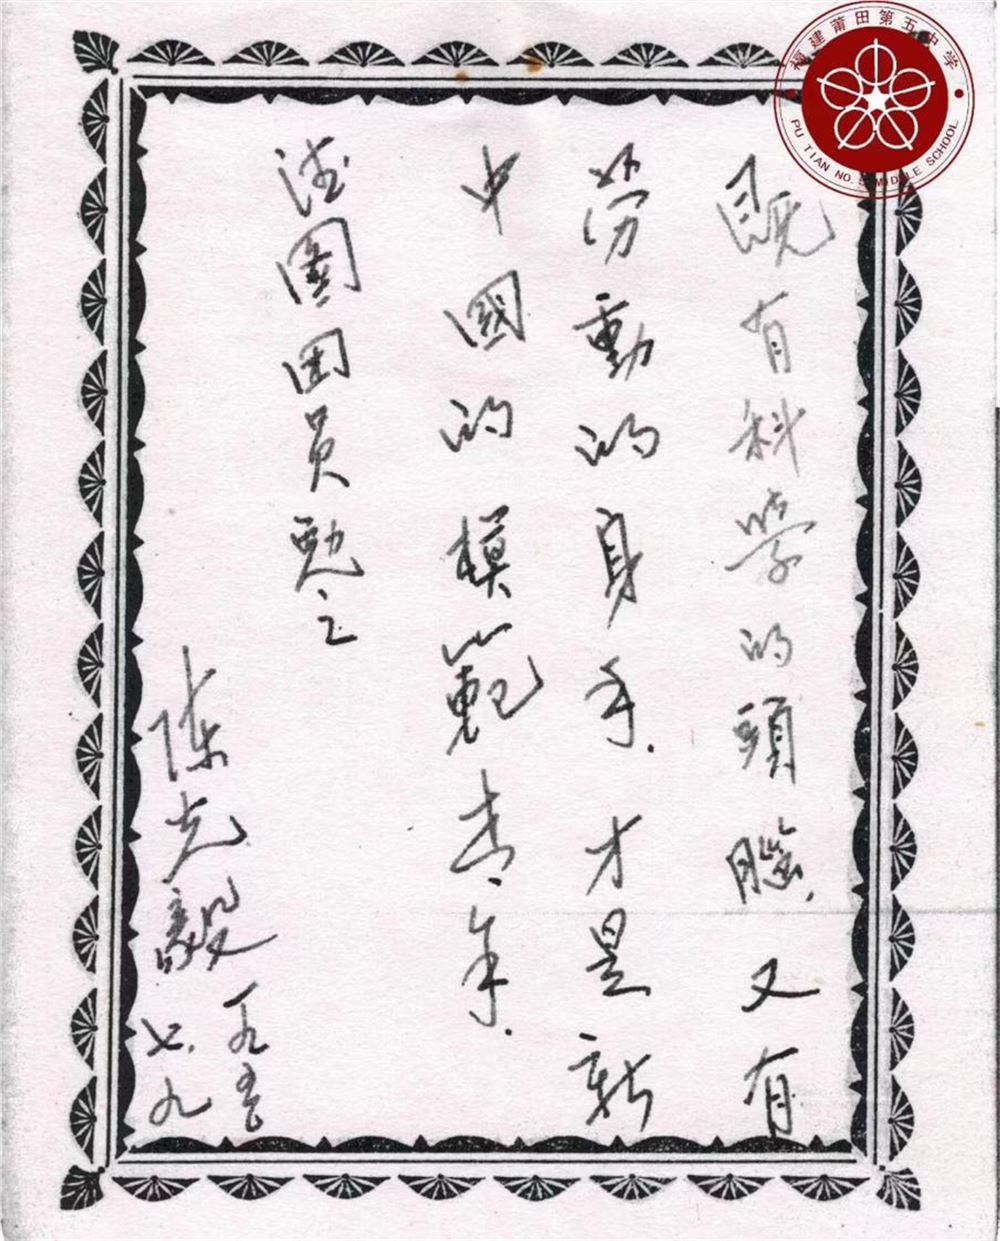 福建莆田第五中学
PU TIAN NO.5 MIDDLE SCHOOL
既有科學的頭腦,又有
勞動的身手.才是新
中國的模範青年.
团員勉之
陳光毅
一九五〇
七.九